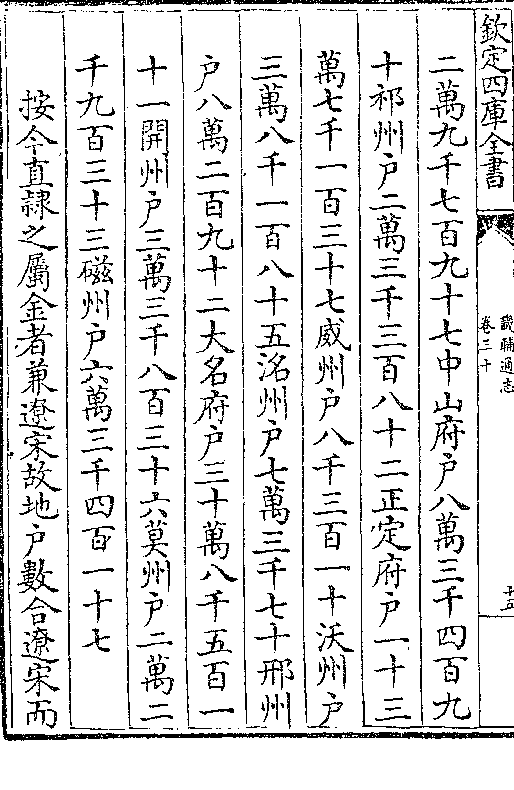 欽定四庫全書
畿輔通志
卷三十
十五
二萬九千七百九十七中山府户八萬三千四百九
十祁州户二萬三千三百八十二正定府户一十三
萬七千一百三十七威州户八千三百一十沃州户
三萬八千一百八十五洺州户七萬三千七十邢州
户八萬二百九十二大名府户三十萬八千五百一
十一開州户三萬三千八百三十六莫州户二萬二
千九百三十三磁州户六萬三千四百一十七
按今直隷之屬金者兼遼宋故地户數合遼宋而